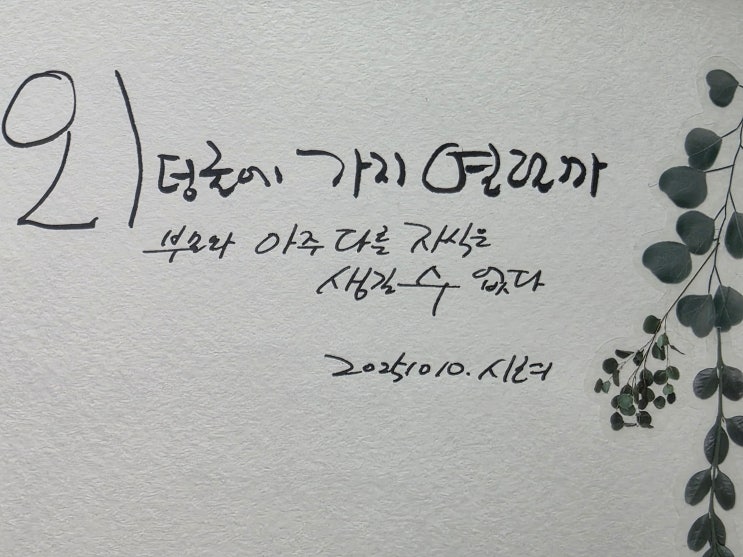 외덩굴에 가지 열릴까
부모와 아주 다른 자식은
생길 수 없다
20251010.